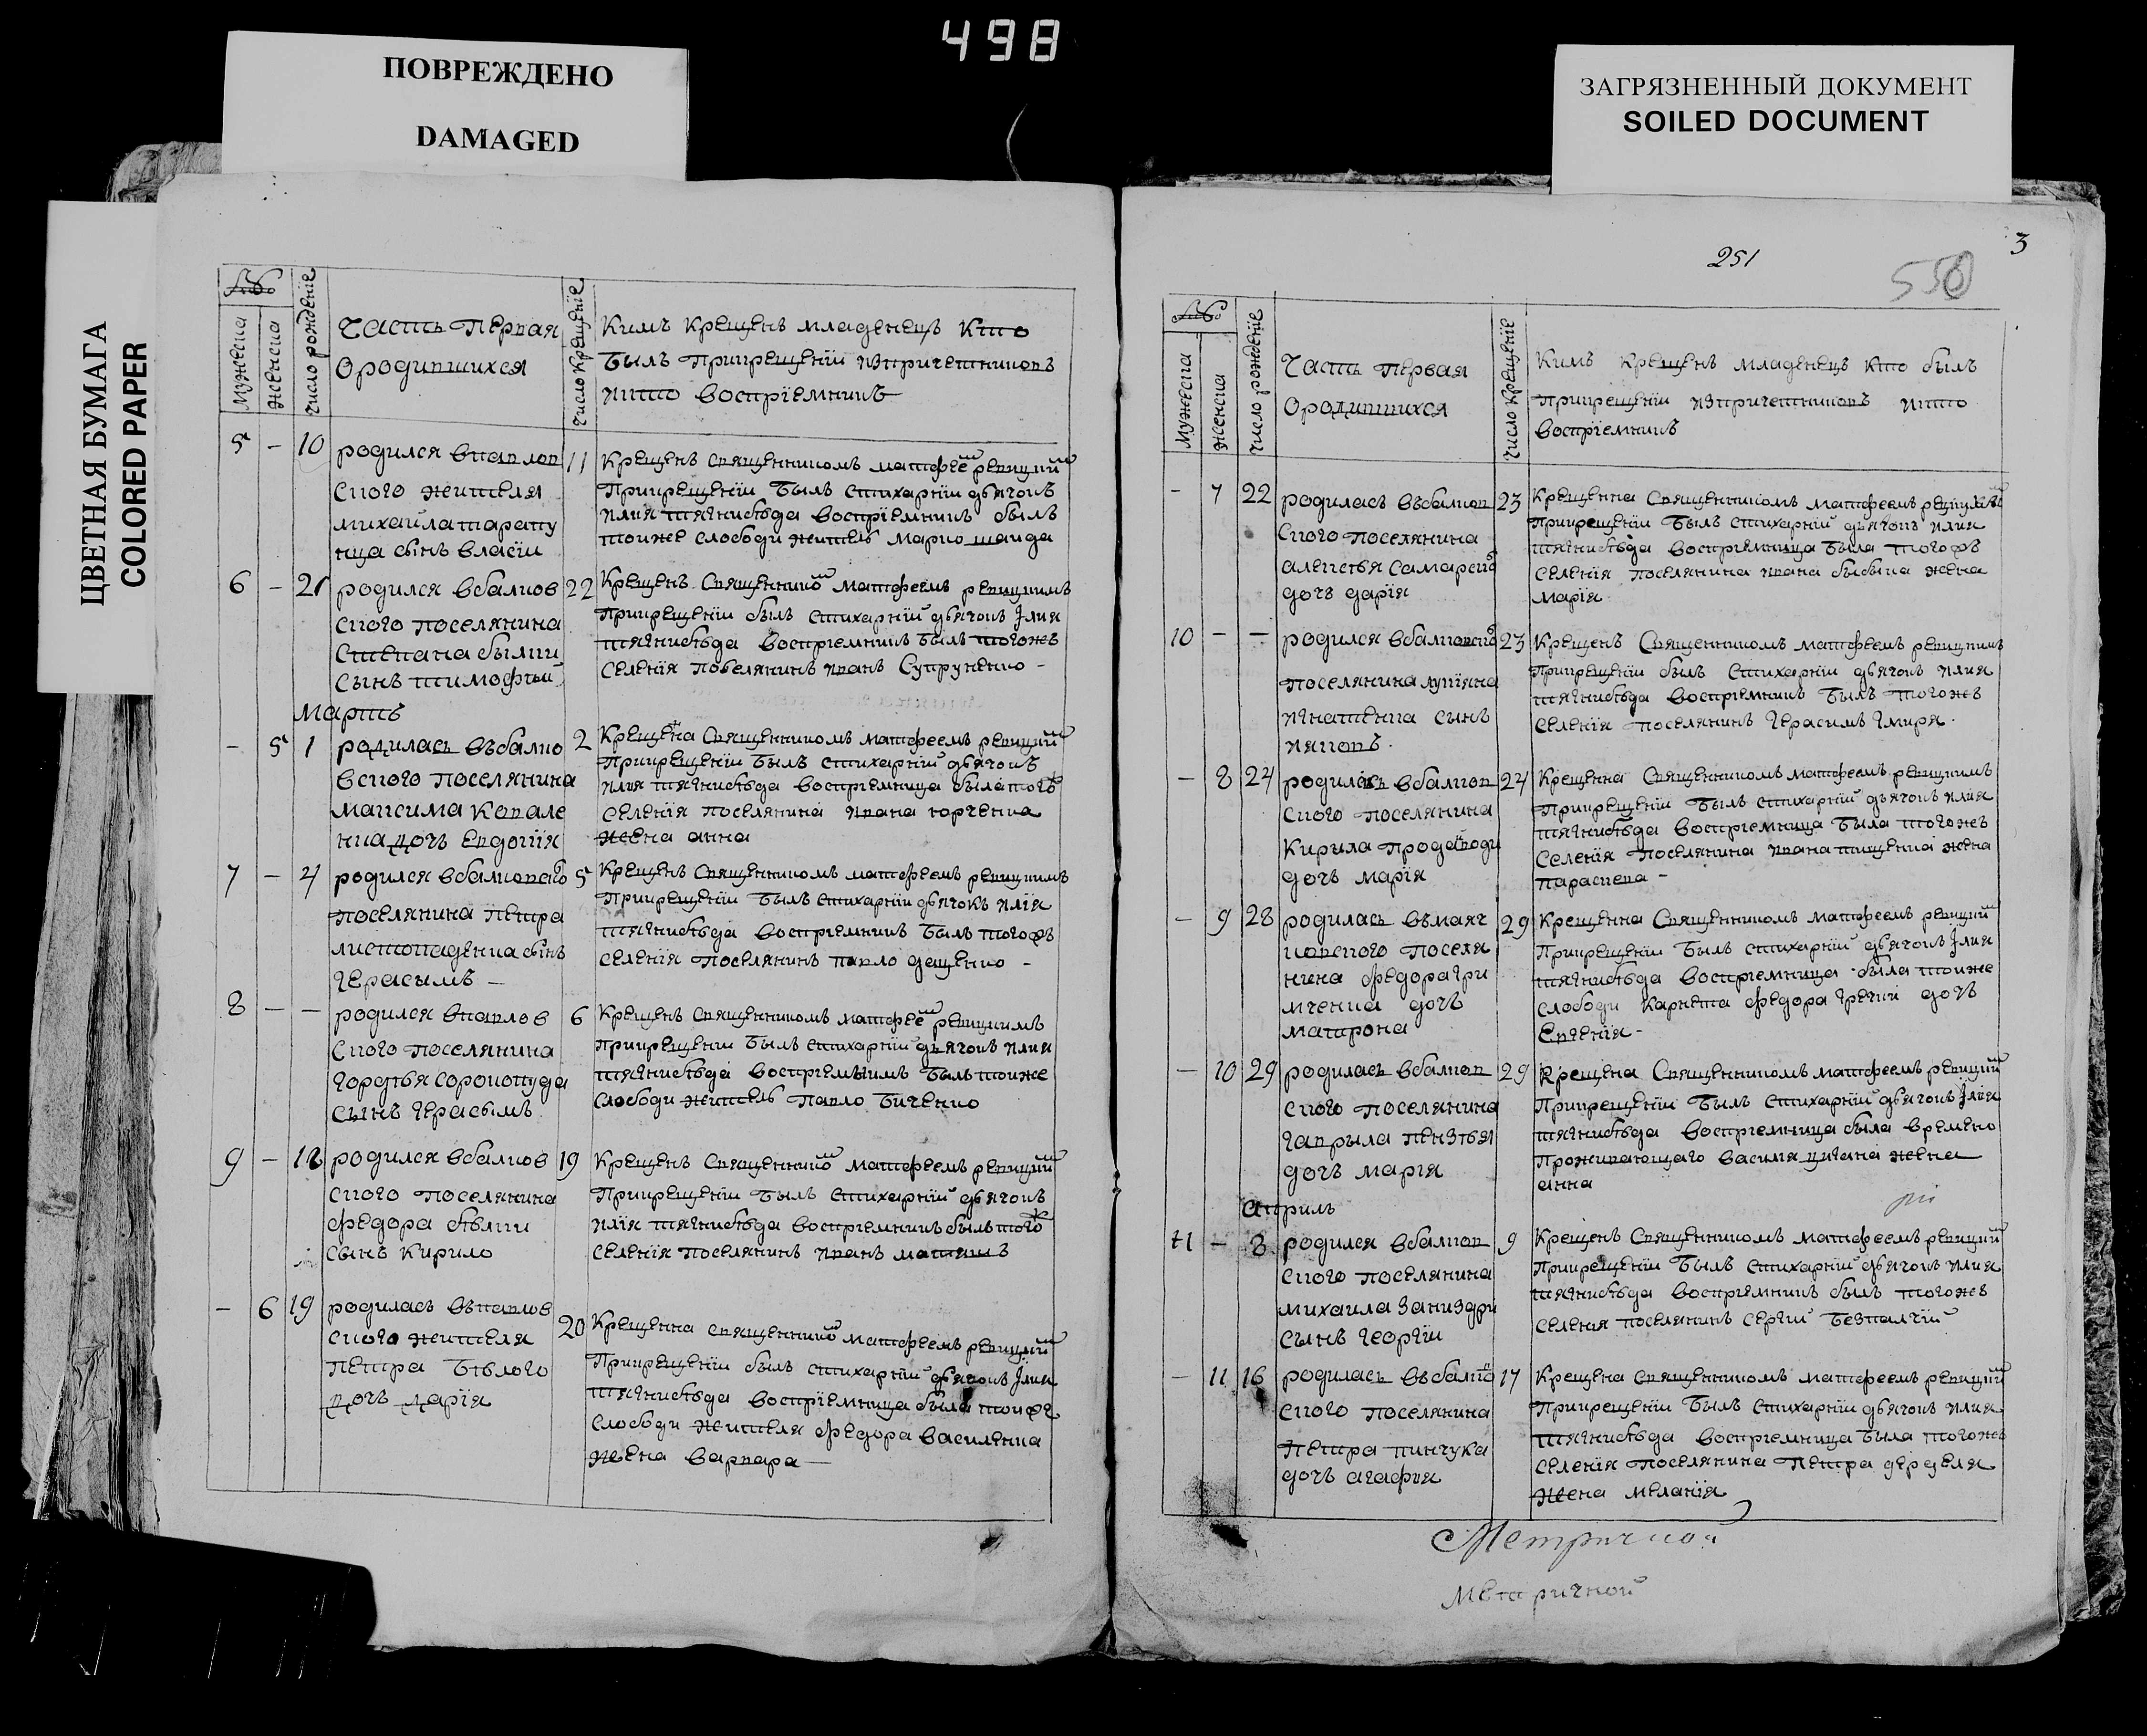 498
ПОВРЕЖДЕНО
DAMAGED
ЗАГРЯЗНЕННЫЙ ДОКУМЕНТ
SOILED DOCUMENT
ЦВЕТНАЯ БУМАГА
COLORED PAPER
мужеска
женска
число рожденїе
Часть Первая
Ородившихся
число крещенїе
Кимъ крещенъ младенецъ Кто
былъ Прикрещенїи изпричетниковъ
икто воспрїемникъ
5 - 10 родился впавлов 11
ского жителя
михайла тарану
нца сынъ власїи
Крещенъ священникомъ матфеем ревицкий
Прикрещенїи былъ стихарнїи дьячокъ
илия тягнибѣда воспрїемникъ былъ
тоиже слободи житель марко шаида
6 - 21 родился вбалков 22
ского поселянина
Степана былки
сынъ тимофѣй
Крещенъ священником матфеемъ ревицкимъ
Прикрещенїи былъ стихарнїи дьячокъ Ілия
тягнибѣда воспрїемникъ былъ тогожъ
селенїя поселянинъ иванъ Супруненко -
мартъ
- 5 1 родилась въбалко 2
вского поселянина
максима Ковале
нка дочь Евдокїя
Крещена священникомъ матфеемъ ревицкий
Прикрещенїи былъ стихарнїи дьячокъ
илия тягнибѣда воспрїемница была тогож
селенїя поселянина ивана юрченка
жена анна
7 - 4 родился вбалковского 5
поселянина петра
листопаденка сынъ
Герасымъ -
Крещенъ священникомъ матфеемъ ревицкимъ
Прикрещенїи былъ стихарнїи дьячокъ илїя
тягнибѣда воспрїемникъ былъ тогожъ
селенїя поселянинъ павло дещенко -
8 - - родился впавлов 6
ского поселянина
Гордѣя сорокопуда
сынъ Герасымъ
Крещенъ священникомъ матфеем ревицкимъ
прикрещенїи былъ стихарнїи дьячокъ илия
тягнибѣда воспрїемникъ былъ тоиже
слободи житель павло Биченко
9 - 18 родился вбалков 19
ского поселянина
федора бѣлки
сынъ Кирило
Крещенъ священником матфеемъ ревицкий
Прикрещенїи былъ стихарнїи дьячокъ
илїя тягнибѣда воспрїемникъ былъ тогож
селенїя поселянинъ иванъ
- 6 19 родилась въпавлов 20
ского жителя
петра бѣлого
дочь дарїя
Крещенна священником матфеемъ ревицкий
Прикрещенїи былъ стихарнїи дьячокъ Ілия
тягнибѣда воспрїемница была тоиже
слободи жителя федора василенка
жена варвара -
251
3
550
мужеска
женска
число рожденїе
Часть Первая
Ородившихся
число крещенїе
Кимъ крещенъ младенецъ Кто былъ
прикрещенїи изпричетниковъ икто
воспрїемникъ
- 7 22 родилась въбалков 23
ского поселянина
алексѣя самарского
дочь дарїя
Крещенна священникомъ матфеемъ ревицкий
прикрещенїи былъ стихарнїи дьячокъ илия
тягнибѣда воспрїемница была тогожъ
селенїя поселянина ивана жена
марїя
10 - - родился вбалковского 23
поселянина лукїяна
игнатенка сынъ
Крещенъ священникомъ матфеемъ ревицкимъ
Прикрещенїи былъ стихарнїи дьячокъ илия
тягнибѣда воспрїемникъ былъ тогожъ
селенїя поселянинъ Герасимъ Гмиря.
- 8 24 родилась вбалков 24
ского поселянина
Кирила
дочь марїя
Крещенна священникомъ матфеемъ ревицкимъ
Прикрещенїи былъ стихарнїи дьячокъ илия
тягнибѣда воспрїемница была тогожъ
селенїя поселянина ивана тищенка жена
параскева -
- 9 28 родилась въмаяч 29
ковского поселя
нина федора Гри
мченка дочь
матрона
Крещенна священникомъ матфеемъ ревицкий
Прикрещенїи былъ стихарнїи дьячокъ Ілия
тягнибѣда воспрїемница была тоиже
слободи Карнета федора дочь
Евгенїя -
- 10 29 родилась вбалков 29
ского поселянина
гаврыла
дочь марїя
Крещена священникомъ матфеемъ ревицкий
Прикрещенїи былъ стихарнїи дьячокъ Ілїя
тягнибѣда воспрїемница была времено
Проживающаго василия цигана жена
анна
априль
11 - 8 родился вбалков 9
ского поселянина
михаила Заниздри
сынъ Георгїи
Крещенъ священникомъ матфеемъ ревицкий
Прикрещенїи былъ стихарнїи дьячокъ илия
тягнибѣда воспрїемникъ былъ тогожъ
селенїя поселянинъ сергїи безпалчїи
- 11 16 родилась въбалков 17
ского поселянина
петра пинчука
дочь агафия
Крещена священникомъ матфеемъ ревицкий
Прикрещенїи былъ стихарнїи дьячокъ илия
тягнибѣда воспрїемница была тогожъ
селенїя поселянина петра
жена меланїя
Метричной
метричной